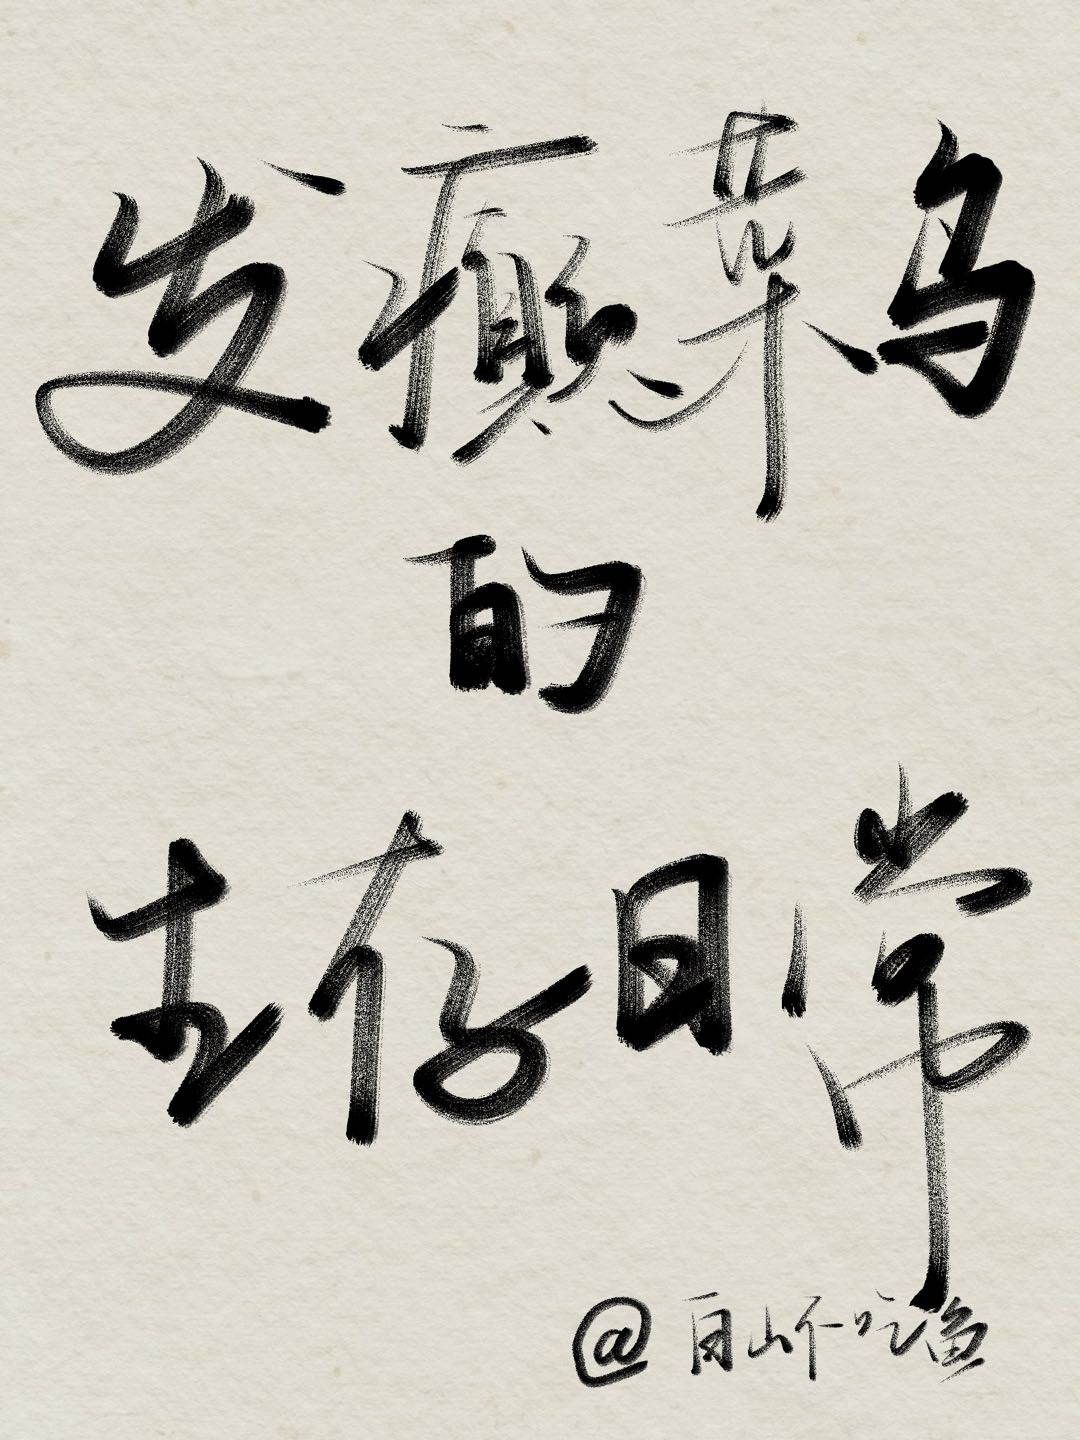 发癫菜鸟
的
生存日常
@百山不吃鱼